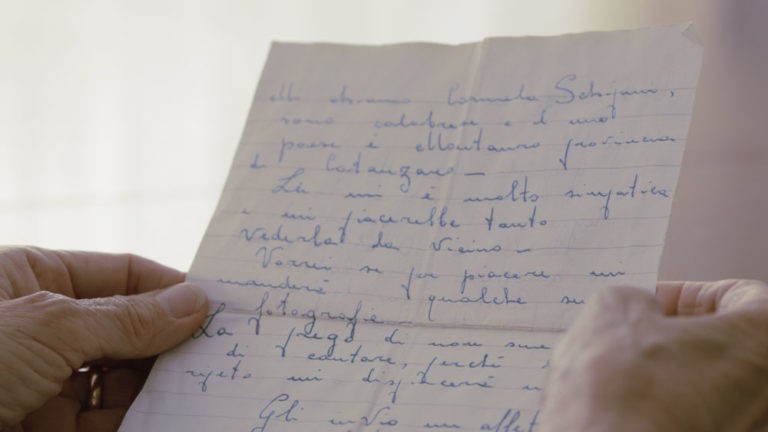 Mi chiamo Carmela
sono calabrese e il mio
paese è Montauro provincia
di Catanzaro –
Lei mi è molto simpatica
e mi piacerebbe tanto
vederla da vicino –
Vorrei se per piacere mi
manderà qualche su
fotografia –
La prego di non sme
di cantare, perché
ripeto mi
Gli invio un affet